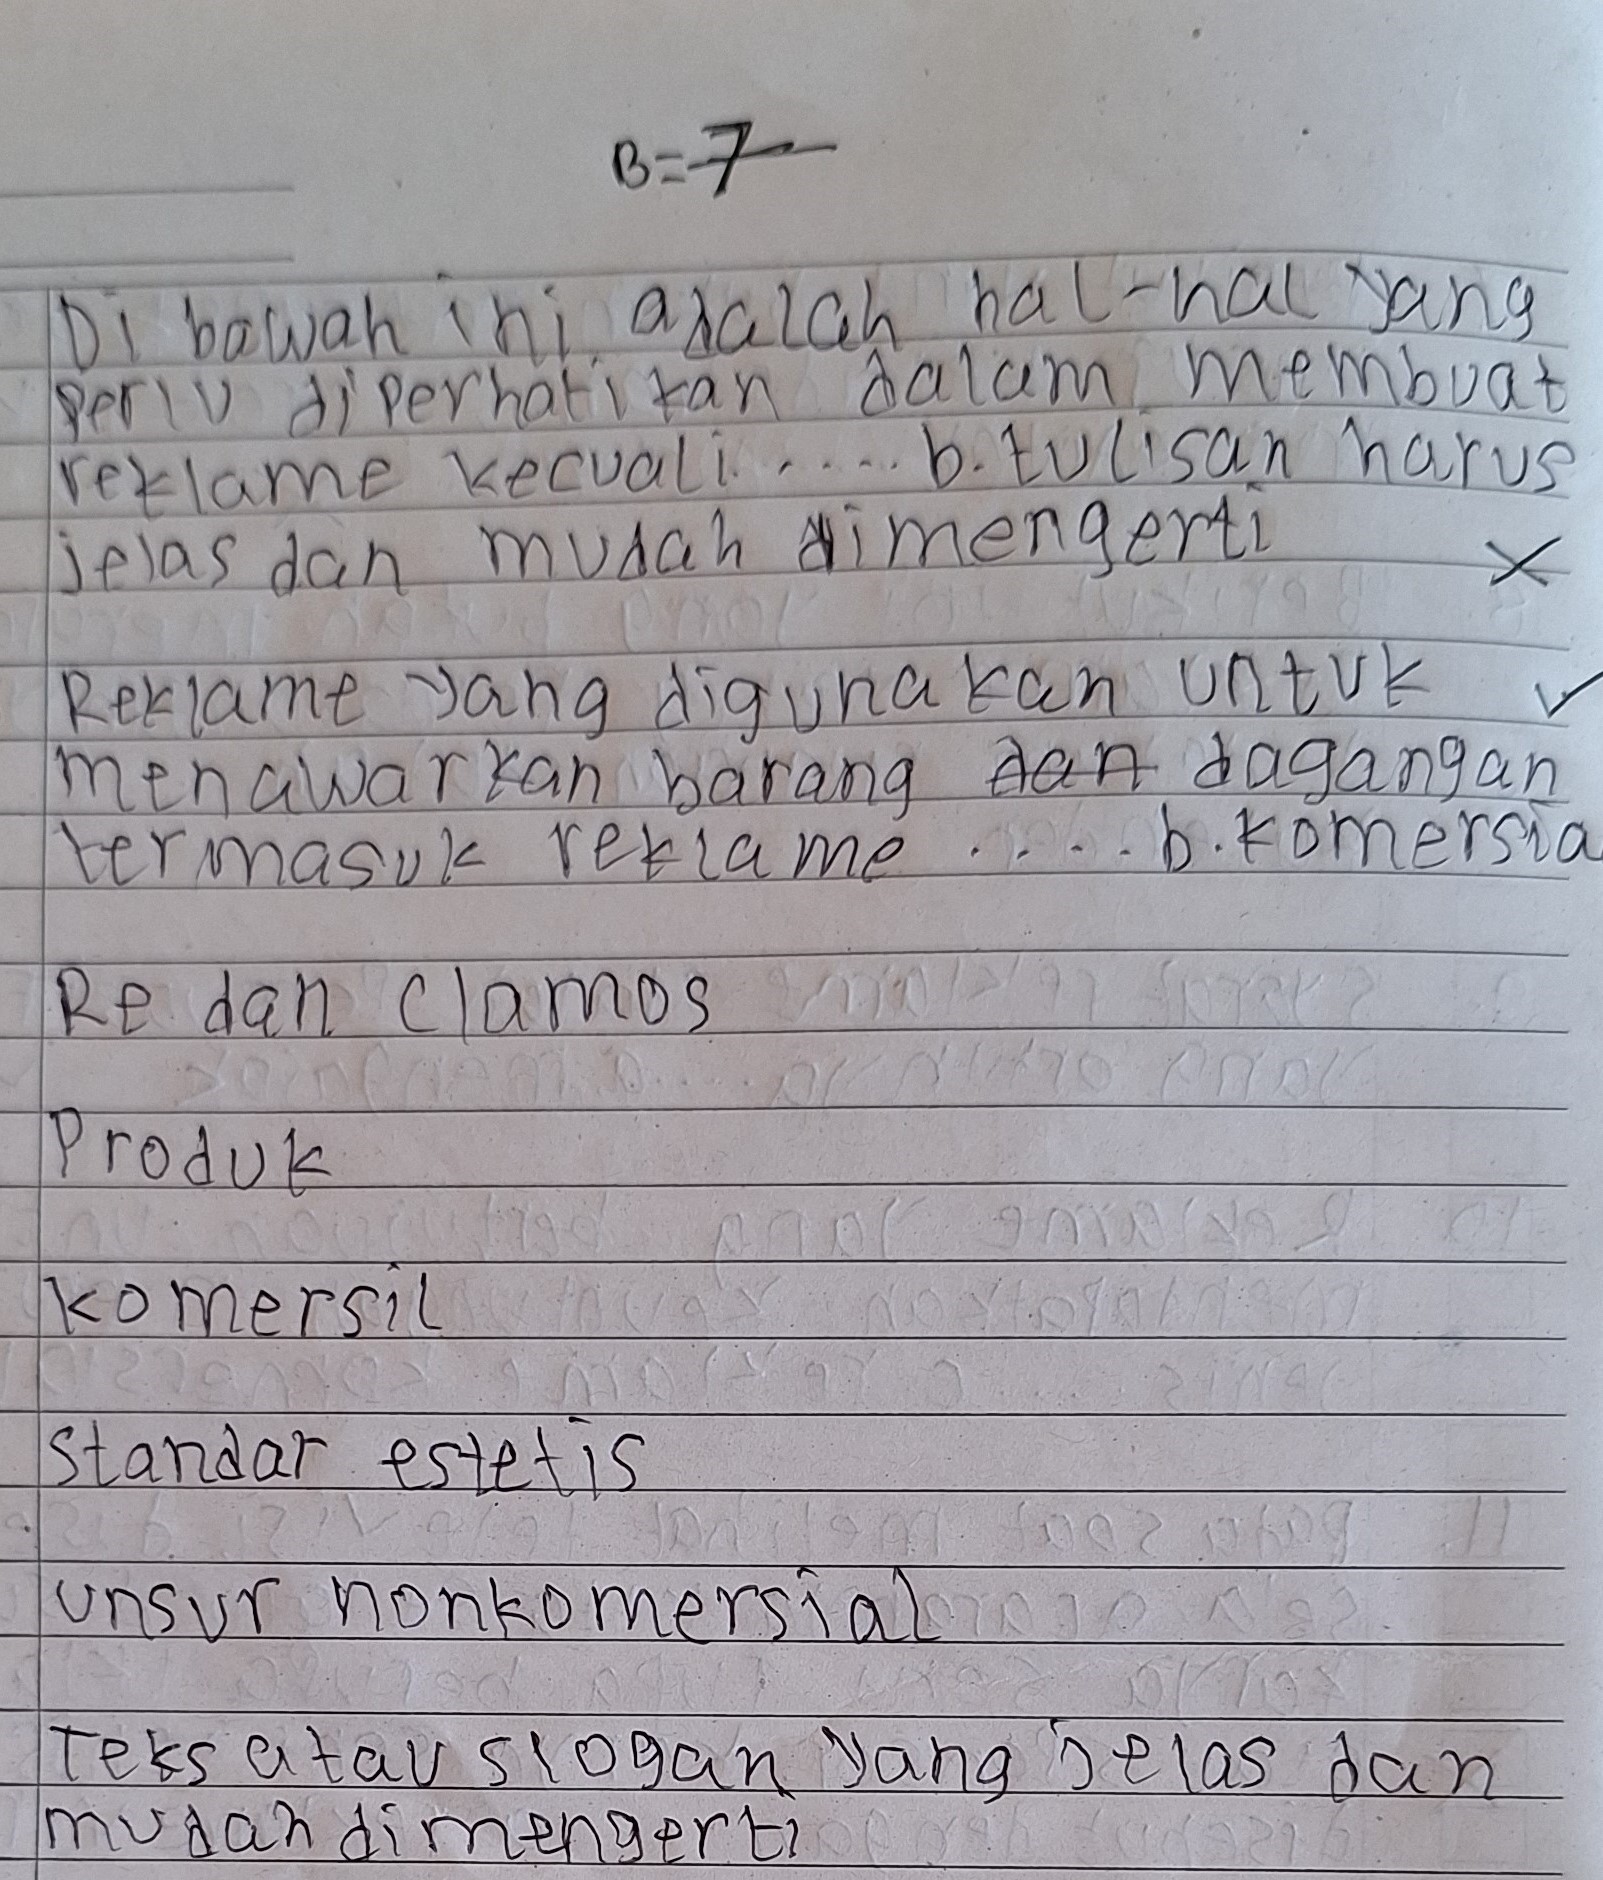 B=7
Di bawah ini adalah hal-hal yang
perlu diperhatikan dalam membuat
reklame kecuali..... b. tulisan harus
jelas dan mudah dimengerti
Reklame yang digunakan untuk
menawarkan barang dan dagangan
termasuk reklame ..... b. komersia
Re dan Clamos
Produk
komersil
Standar estetis
unsur nonkomersial
Teks atau slogan yang jelas dan
mudah dimengerti